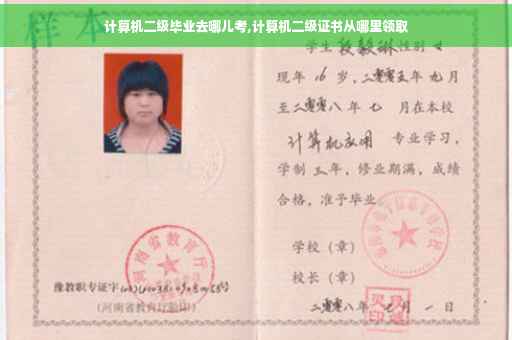 计算机二级毕业去哪儿考,计算机二级证书从哪里领取
样本
学生 段毅琳 性别 女
现年 16 岁，二零零五年 九月
至二零零八年 七 月在本校
计算机应用 专业学习，
学制 三年，修业期满，成绩
合格，准予毕业
学校（章）
校长（章）
二零零八年 七 月 一 日
河南省教育厅
豫教职专证字
（河南省教育厅验印）